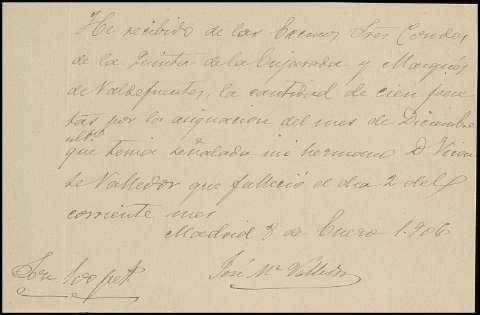 He recibido de los Excmos Sres Condes
de la Quinta de la Enjarada y Marqués
de Valdefuentes, la cantidad de cien pese
tas por la asignacion del mes de Diciembre
ultº
que tenia señalada mi hermano D Vicen
te Valledor que falleció el dia 2 del
corriente mes
Madrid 3 de Enero 1.906
Son 100 pets
José Mª Valledor